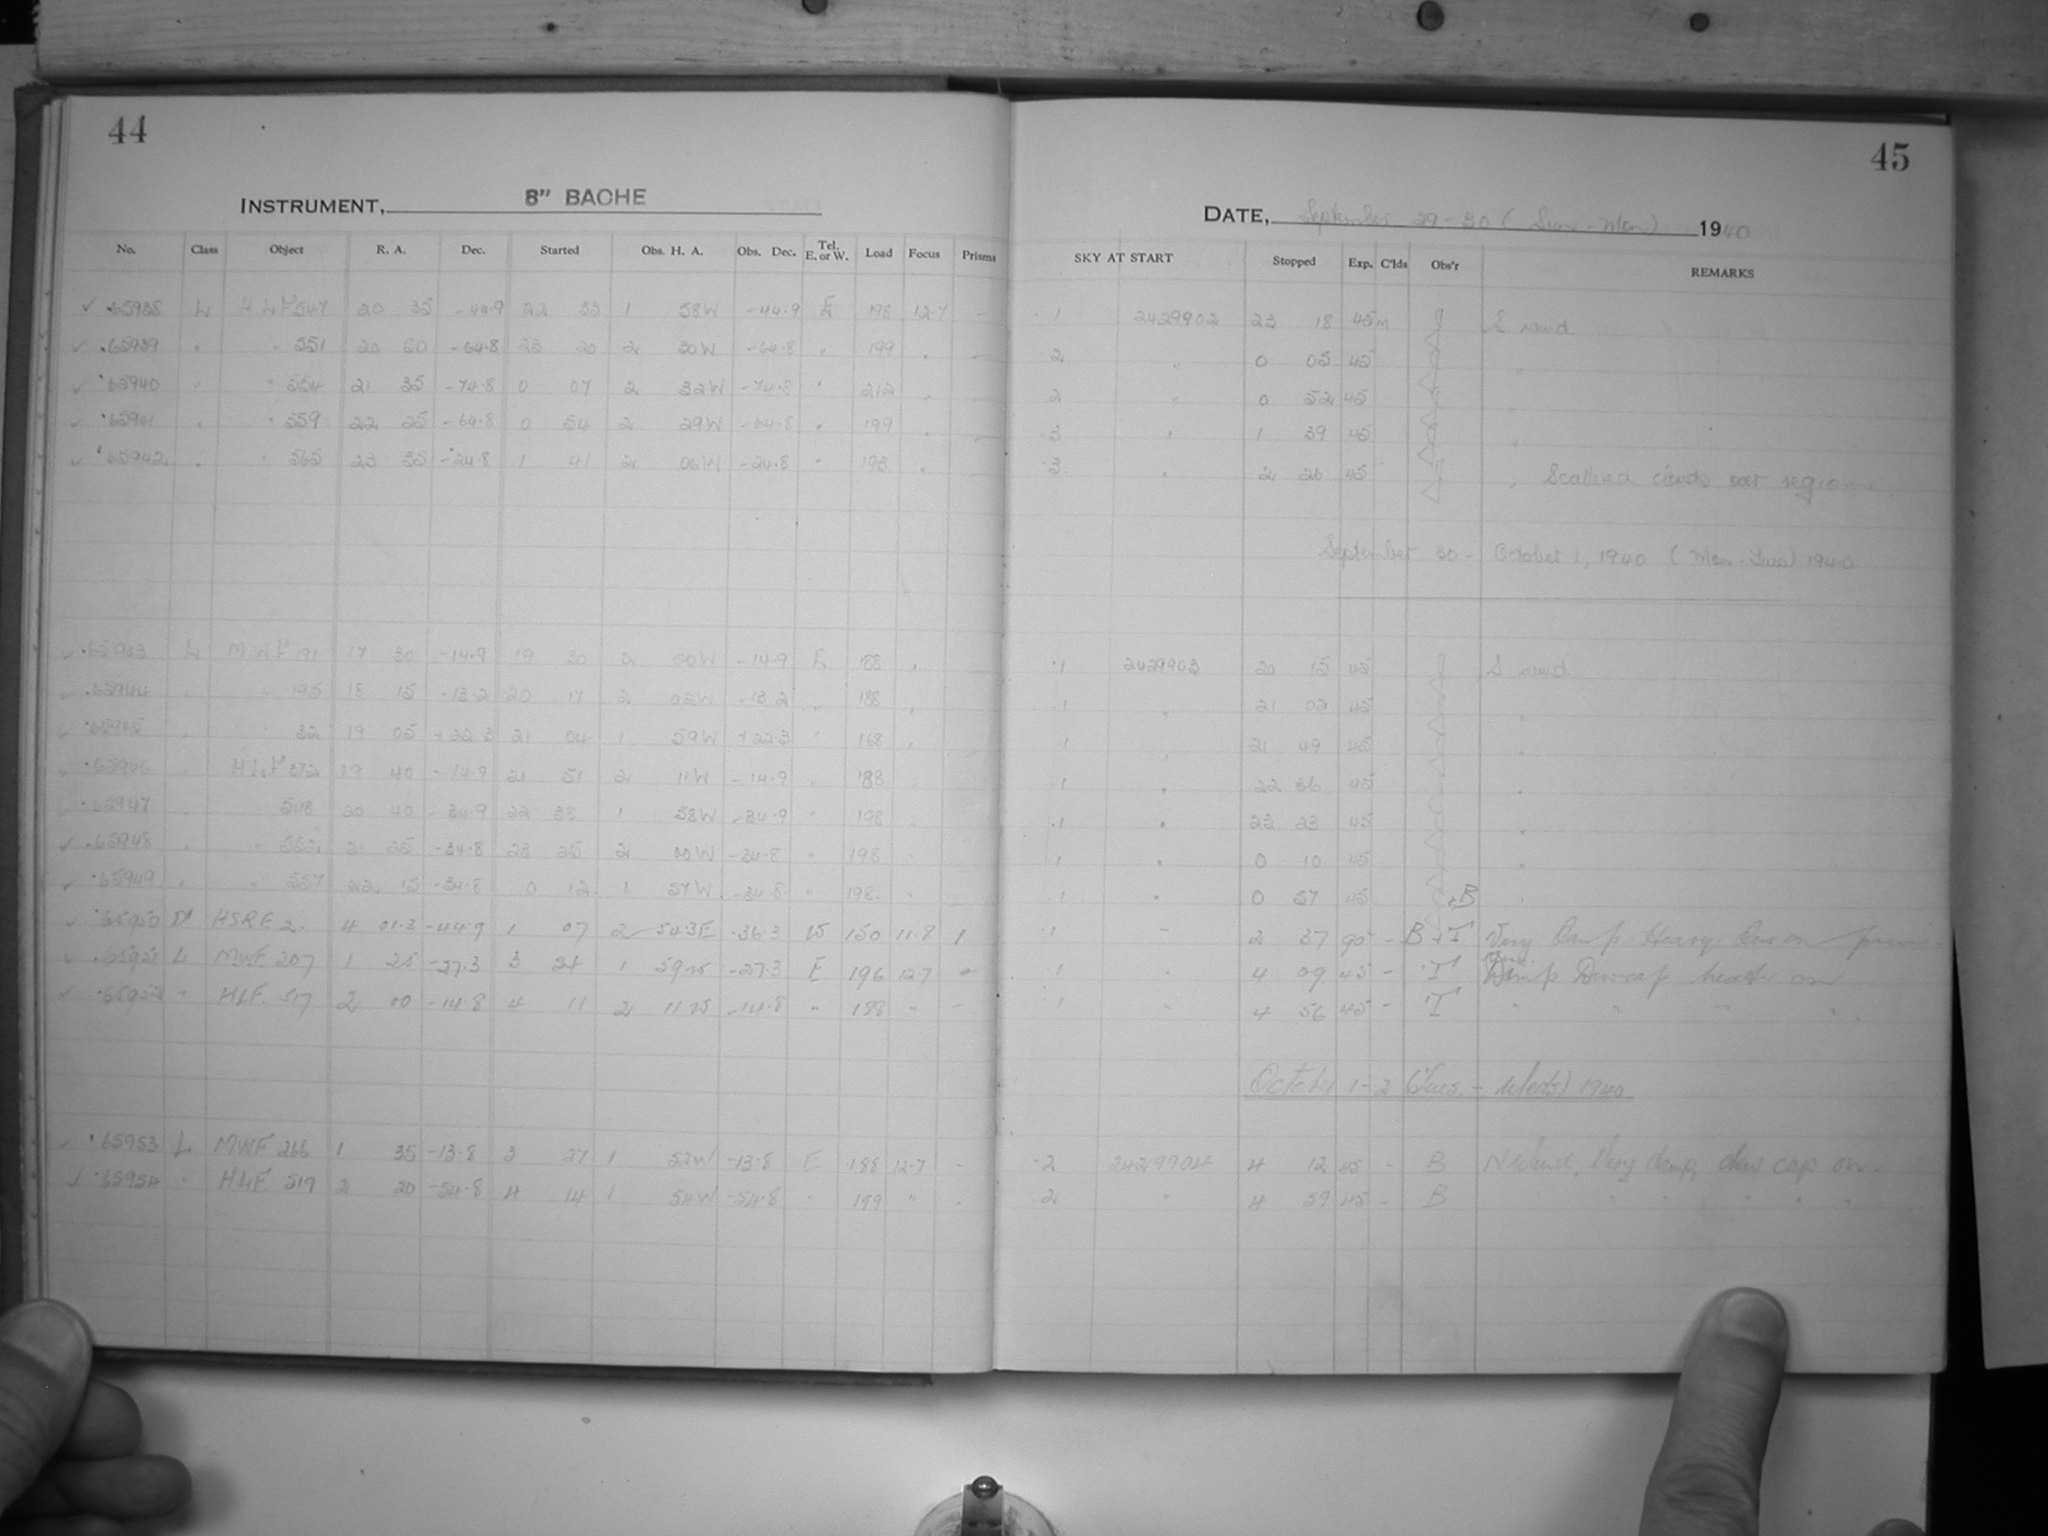 44
45
INSTRUMENT, 8" BACHE
DATE, September 29-30 (Sun-Mon) 1940
No. Class Object R. A. Dec. Started Obs. H. A. Obs. Dec. Tel. E. or W. Load Focus Prisms SKY AT START Stopped Exp. C'lds Obs'r REMARKS
65938 L HLF 547 20 35 -44.9 22 33 1 58W -44.9 E 198 12.7 - 1 2429902 23 18 45m S wind
65939 " " 551 20 50 -64.8 23 20 2 30W -64.8 " 199 " 2 " 0 05 45 "
65940 " " 554 21 35 -74.8 0 07 2 32W -74.8 " 212 " 2 " 0 52 45 "
65941 " " 559 22 25 -64.8 0 54 2 29W -64.8 " 199 " 3 " 1 39 45 "
65942 " " 565 23 35 -24.8 1 41 2 06W -24.8 " 193 " 3 " 2 26 45 " Scattered clouds over region.
September 30 - October 1, 1940 (Mon-Tues) 1940
65943 L MWF 191 17 30 -14.9 19 30 2 00W -14.9 E 188 " 1 2429903 20 15 45 S wind
65944 " " 195 18 15 -13.2 20 17 2 02W -13.2 " 188 " 1 " 21 02 45 "
65945 " " 32 19 05 +22.3 21 04 1 59W +22.3 " 168 " 1 " 21 49 45 "
65946 " HLF 19 40 -14.9 21 51 2 11W -14.9 " 188 1 " 22 36 45 "
65947 " " 548 20 40 -34.9 22 38 1 58W -34.9 " 198 1 " 23 23 45 "
65948 " " 552 21 25 -34.8 23 25 2 00W -34.8 " 198 " 1 " 0 10 45 "
65949 " " 557 22 15 -34.8 0 12 1 57W -34.8 " 198 " 1 " 0 57 45 +B "
65950 HSRF 2 4 01.3 -44.9 1 07 2 54.3E -36.3 W 150 11.8 1 1 " 2 37 90 - B+T Very Damp Heavy Dew on prism
65951 L MWF 207 1 25 -27.3 3 24 1 59W -27.3 E 196 12.7 - 1 " 4 09 45 - T Damp Dewcap heater on
65952 " HLF 517 2 00 -14.8 4 11 2 11W -14.8 " 188 " - 1 " 4 56 45 - T " " " "
October 1-2 (Tues. - Weds) 1940
65953 L MWF 266 1 35 -13.8 3 27 1 52W -13.8 E 188 12.7 - 2 2429904 4 12 45 - B N wind. Very damp, dew cap on.
65954 " HLF 519 2 20 -54.8 4 14 1 54W -54.8 " 199 " - 2 " 4 59 45 - B " " " " " "